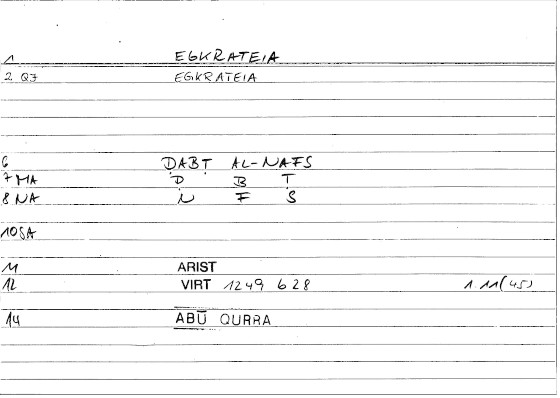 1 EGKRATEIA
2 Q7 EGKRATEIA
6 ḌABṬ AL-NAFS
7 MA Ḍ B Ṭ
8 NA N F S
10 SA
11 ARIST
12 VIRT 1249 b 28 1 11(45)
14 ABŪ QURRA